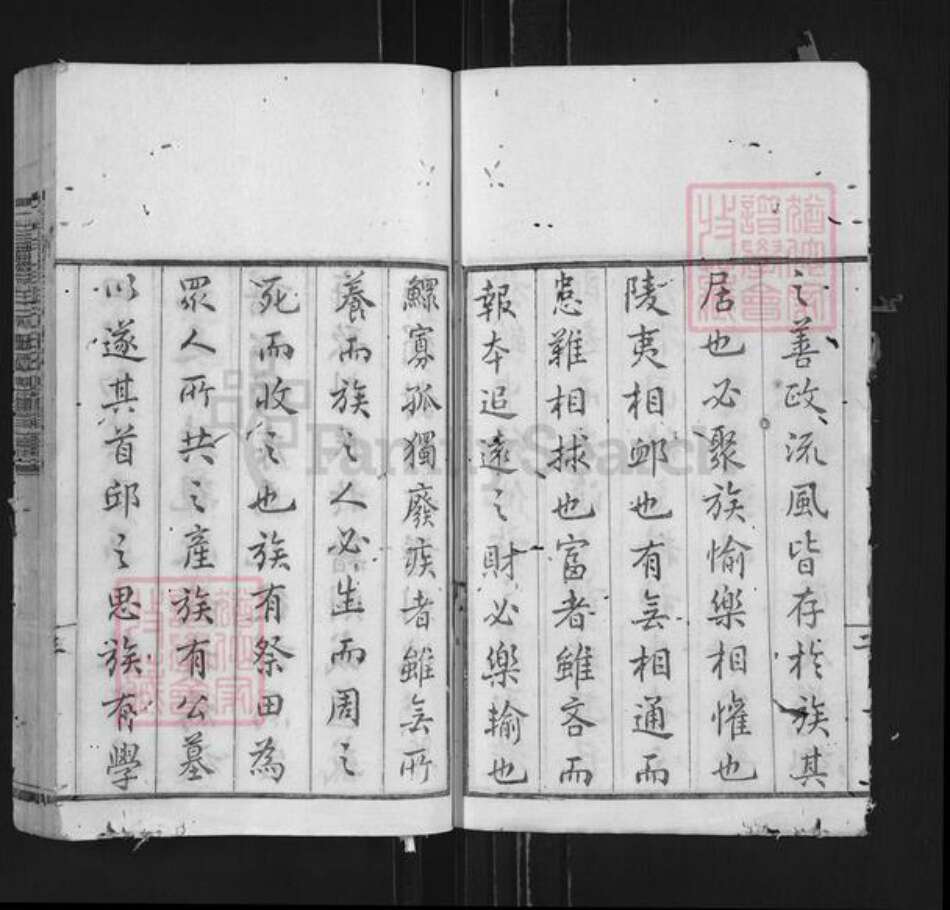 之善政流風皆存於族其
居也必聚族愉樂相懽也
陵夷相卹也有無相通而
患難相捄也富者雖吝而
報本追遠之財必樂輸也
鰥寡孤獨廢疾者雖無所
養而族之人必生而周之
死而收之也族有祭田為
眾人所共之產族有公墓
以遂其首邱之思族有學
二
三
FamilySearch